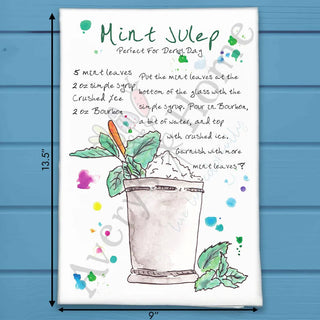 Mint Julep
Perfect For Derby Day
5 mint leaves
2 oz simple syrup
Crushed Ice
2 oz Bourbon
Put the mint leaves at the
bottom of the glass with the
simple syrup. Pour in Bourbon,
a bit of water, and top
with crushed ice.
Garnish with more
mint leaves?
13.5"
9"